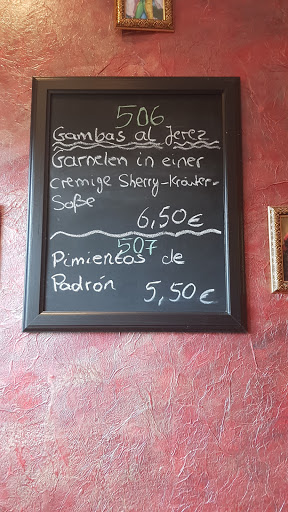 506
Gambas al Jerez
Garnelen in einer
cremige Sherry-Kräuter-
Soße
6,50€
507
Pimientos de
Padrón
5,50€